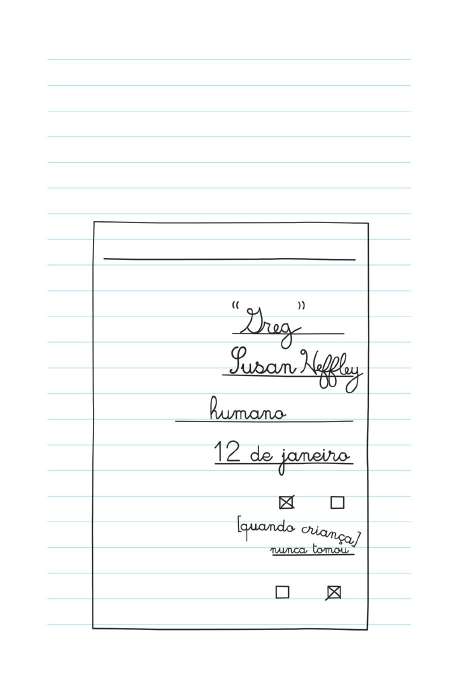 “Greg”
Susan Heffley
humano
12 de janeiro
[quando criança]
nunca tomou